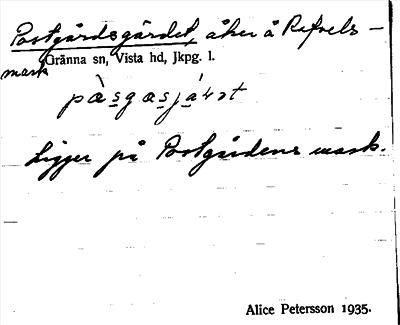 Postgårdsgärdet, åker å Refvels-
mark
Gränna sn, Vista hd, Jkpg. l.
Ligger på Postgårdens mark.
Alice Petersson 1935.